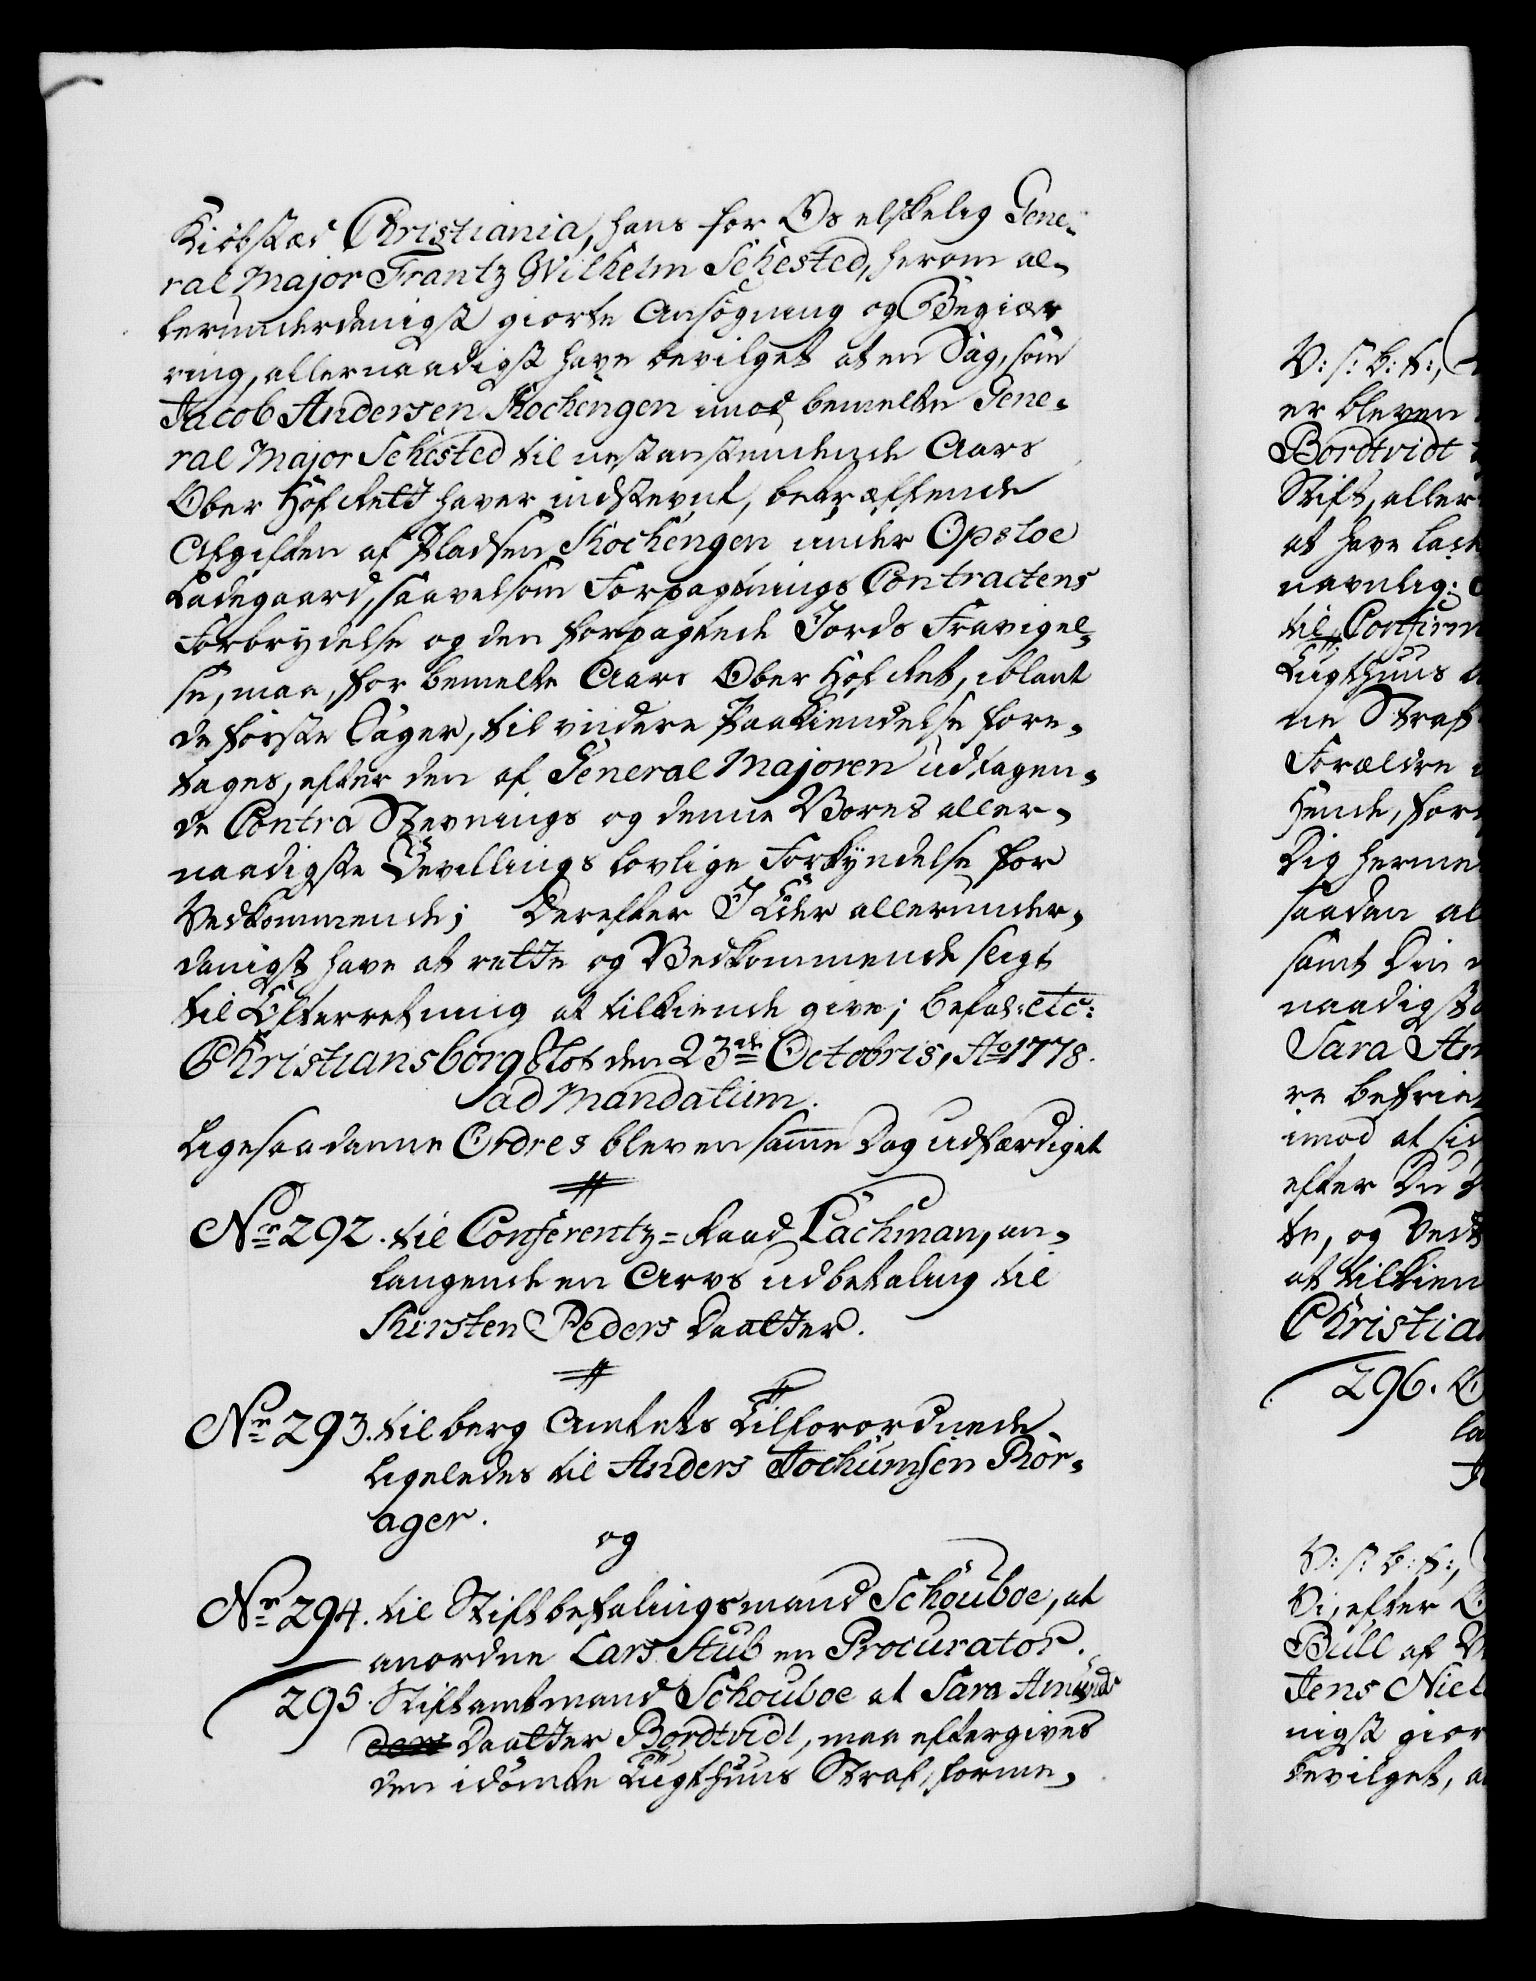 Kiøbstæd Christiania, hans for Os elskelig Gene-
ral Major Frantz Wilhelm Sehested, herom al-
lerunderdanigst giorte Ansøgning og Begiæ-
ring, allernaadigst have bevilget at en Sag, som
Jacob Andersen Kochengen imod bemelte Gene-
ral Major Sehested til nestanstundende Aars
Ober Hof Rett haver indstevnt, betræffende
Afgiften af Pladsen Kochengen under Opsloe
Ladegaard, saavelsom Forpagtnings Contractens
Forbrydelse og den forpagtede Jords Fravigel-
se, maa, for bemelte Aars Ober Hof Ret, iblant
de første Sager, til videre Paakiendelse fore-
tages, efter den af General Majoren udtagen-
de Contra Stevnings og denne Vores aller-
naadigste Bevillings lovlige Forkyndelse for
Vedkommende; Derefter I Eder allerunder-
danigst have at rette og Vedkommende sligt
til Efterretning at tilkiende give; Befal: etc:
Christiansborg Slot den 23de Octobris, Ao 1778.
ad Mandatum.
Ligesaadanne Ordres bleven samme Dag udfærdiget
Nr 292. til Conferentz=Raad Lachman, an-
langende en Arvs udbetaling til
Kirsten Peders Daatter.
Nr 293. til berg Amtets Tilforordnede
ligeledes til Anders Jochumsen Rør-
ager.
og
Nr 294. til Stiftbefalingsmand Schouboe, at
anordne Lars Stub en Procurator.
295. Stiftamtmand Schouboe at Sara Amunds
Daatter Bordtvidt, maa eftergives
den idømte Tugthuus Straf, forme-
V: s: k: f:,
er bleven
Bordtvidt
Stift, aller
at have lad
navnlig:
til Confirm
Tugthuus
ne Straf
Forældre
hende, for
Dig herme
saadan al
samt Din
naadigst
Sara Am
re befrie
imod at si
efter Du
te, og Ved
at tilkien
Christia
296.
la
V: s: k: f:,
Vi, efter
Bull af
Jens Niel
nigst gior
bevilget, a